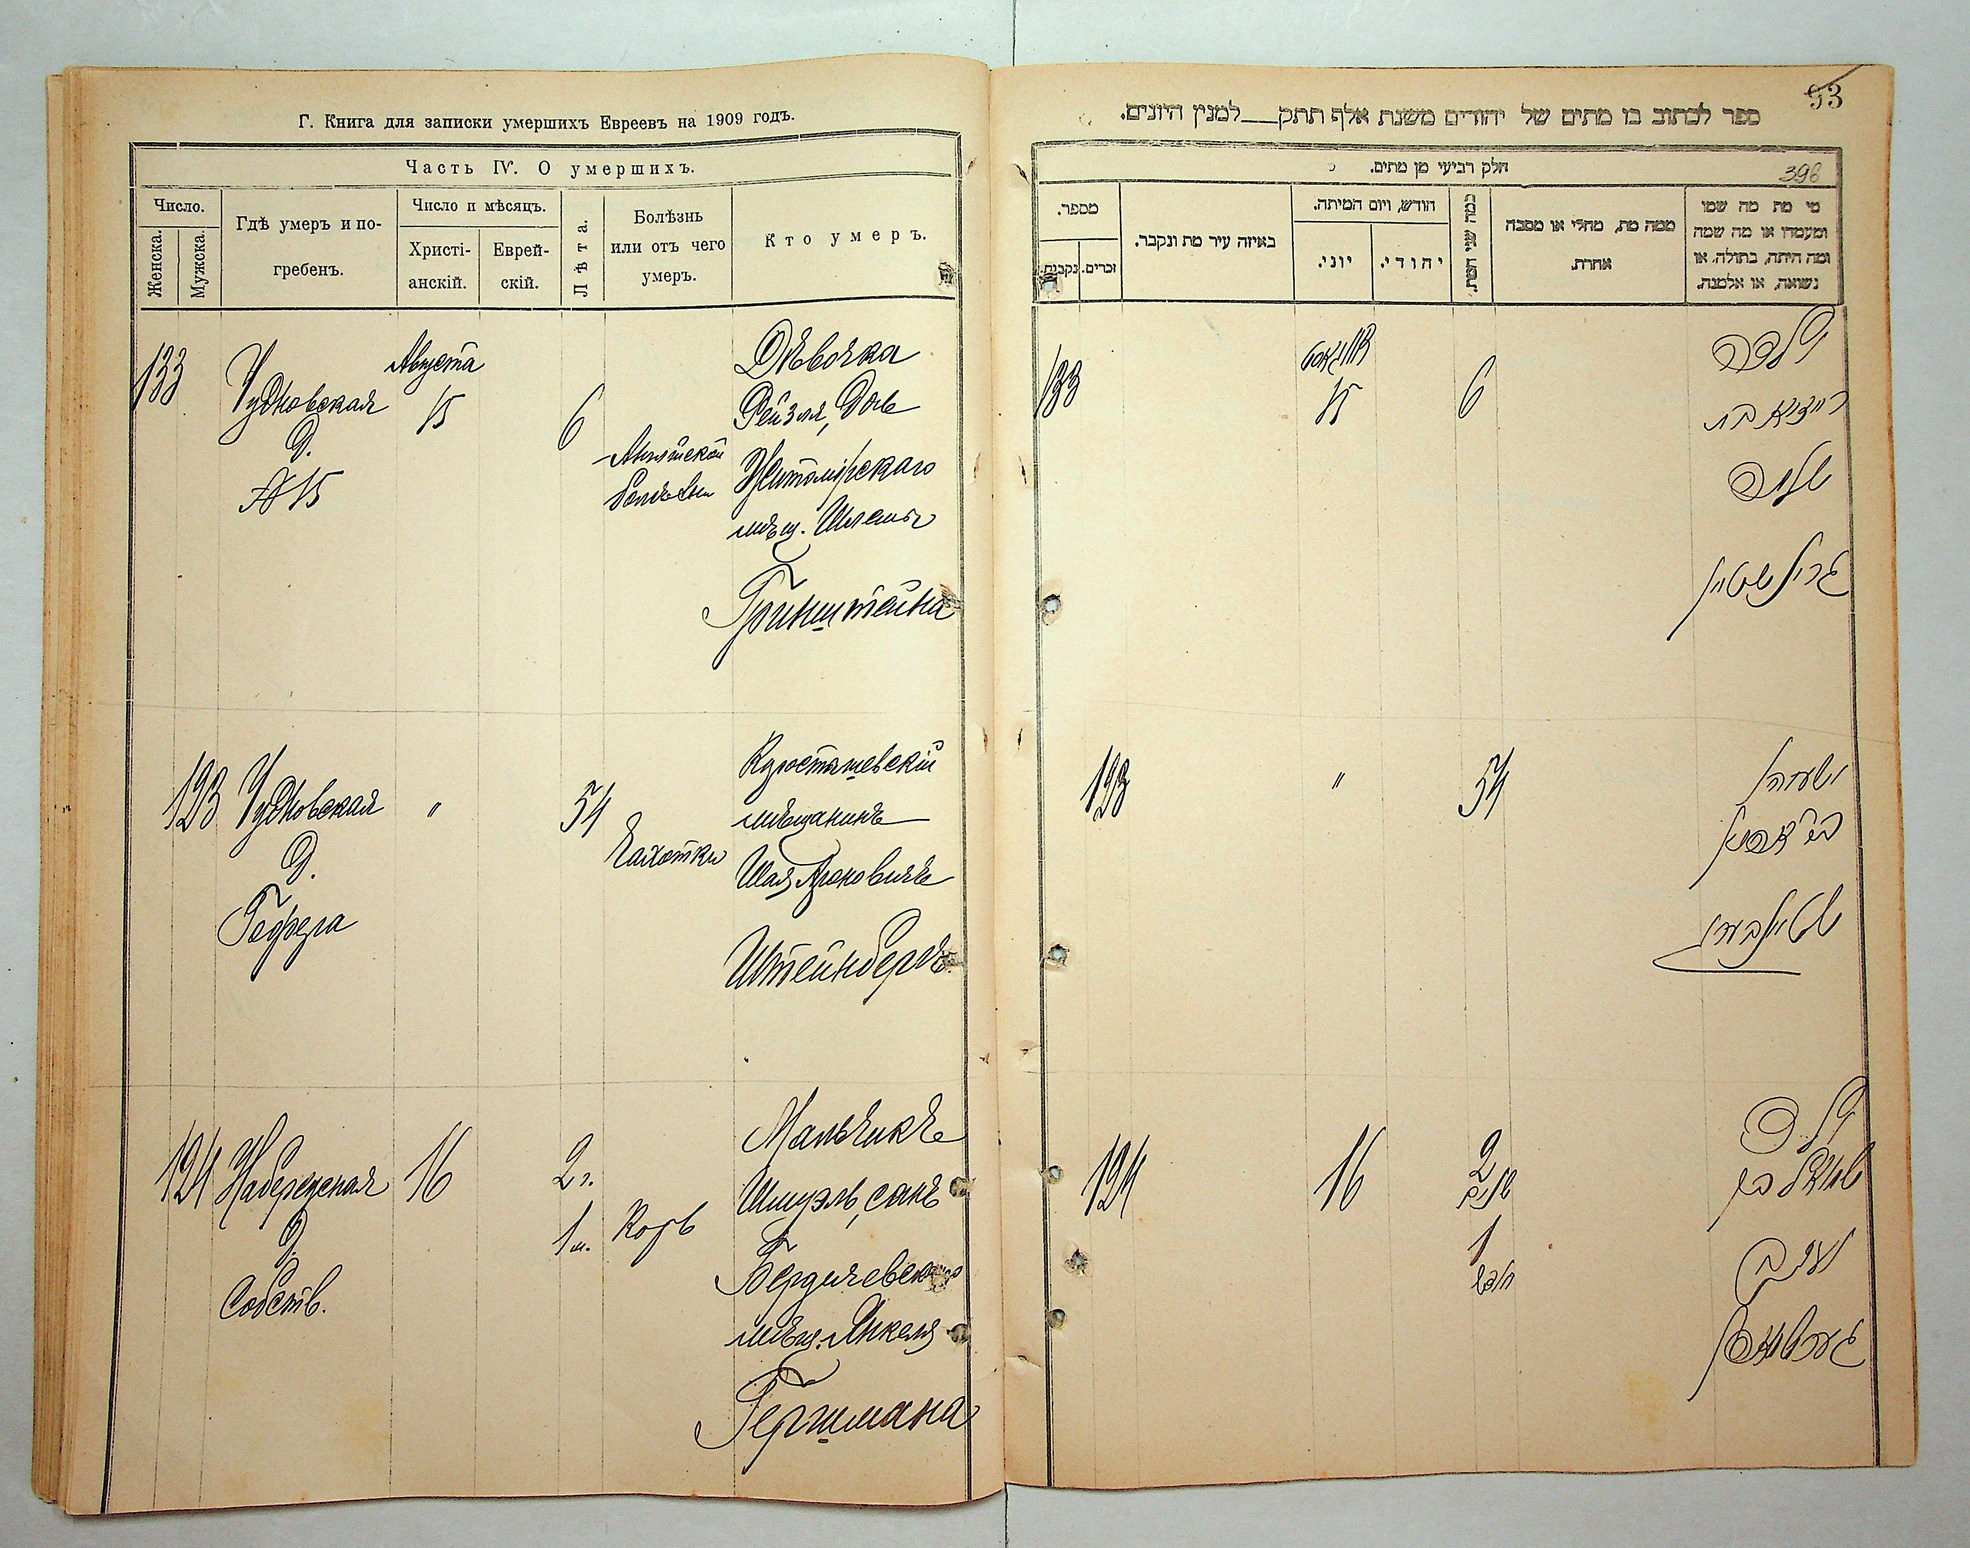 Г. Книга для записки умершихъ Евреевъ на 1909 годъ.
Часть IV. О умершихъ.
Число.
Женска.
Мужска.
Гдѣ умеръ и по-
гребенъ.
Число и мѣсяцъ.
Христі-
анскій.
Еврей-
скій.
Лѣта.
Болѣзнь
или отъ чего
умеръ.
Кто умеръ.
133
Чудновская
д.
№ 15
Августа
15
6
Дѣвочка
Рейзля, дочь
Житомірскаго
мѣщ.
Гринштейна
123
Чудновская
д.
Гефера
"
54
Чахотки
Коростышевскій
мѣщанинъ
Шая Ароновичъ
Штейнбергъ
124
Набережная
д.
Собств.
16
2 г.
1 м.
Корь
Мальчикъ
Шмуэль, сынъ
Бердичевскаго
мѣщ. Янкеля
Гершмана
93
ספר לכתוב בו מתים של יהודים משנת אלף תתק__למנין היונים.
חלק רביעי מן מתים.
396
מי מת מה שמו
ומעמדו או מה שמה
ומה היתה, בתולה, או
נשואה, או אלמנה.
ממה מת, מחלי או מסבה
אחרת.
כמה שני המת.
חודש, ויום המיתה.
יהודי.
יוני.
באיזה עיר מת ונקבר.
מספר.
זכרים.
נקבות.
133
אויגוסט
15
6
ילדה
רייזיא בת
שלמה
גרינשטיין
123
"
54
ישעיהו
בן אהרן
שטיינבערג
124
16
2
שנים
1
חדש
ילד
שמואל בן
יעקב
גערשמאן